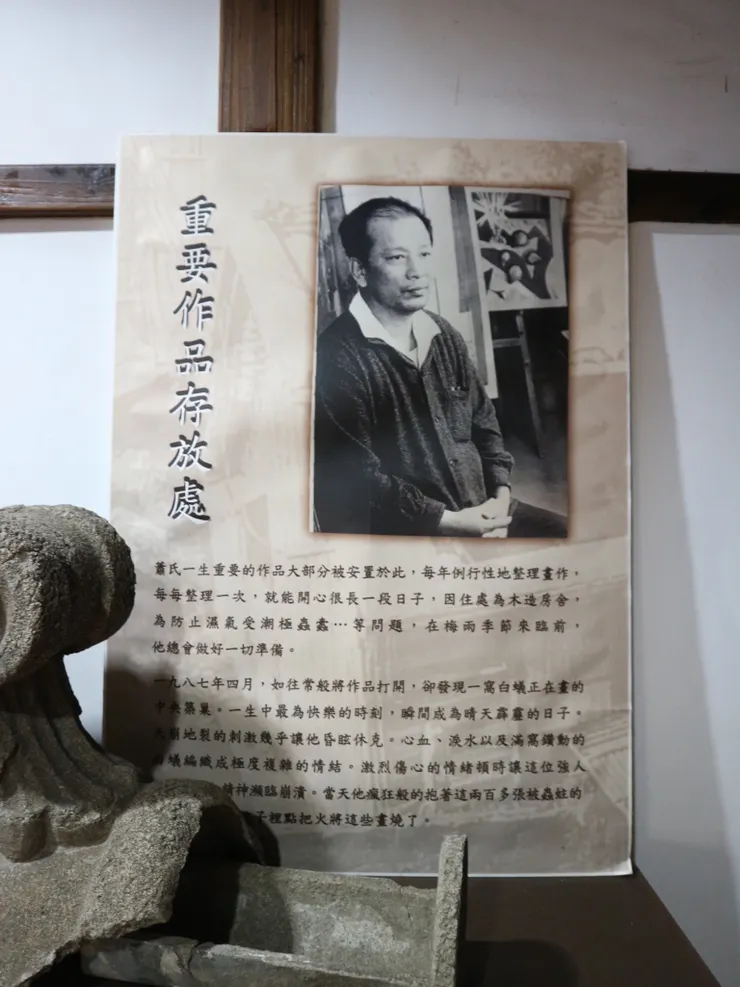 重要作品存放處
蕭氏一生重要的作品大部分被安置於此，每年例行性地整理畫作，
每每整理一次，就能開心很長一段日子，因住處為木造房舍，
為防止濕氣受潮極蟲蠹…等問題，在梅雨季節來臨前，
他總會做好一切準備。
一九八七年四月，如往常般將作品打開，卻發現一窩白蟻正在畫的
中央築巢。一生中最為快樂的時刻，瞬間成為晴天霹靂的日子。
天崩地裂的刺激幾乎讓他昏眩休克。心血、淚水以及滿窩鑽動的
白蟻編織成極度複雜的情結。激烈傷心的情緒頓時讓這位強人
精神瀕臨崩潰。當天他瘋狂般的抱著這兩百多張被蟲蛀的
子裡點把火將這些畫燒了。